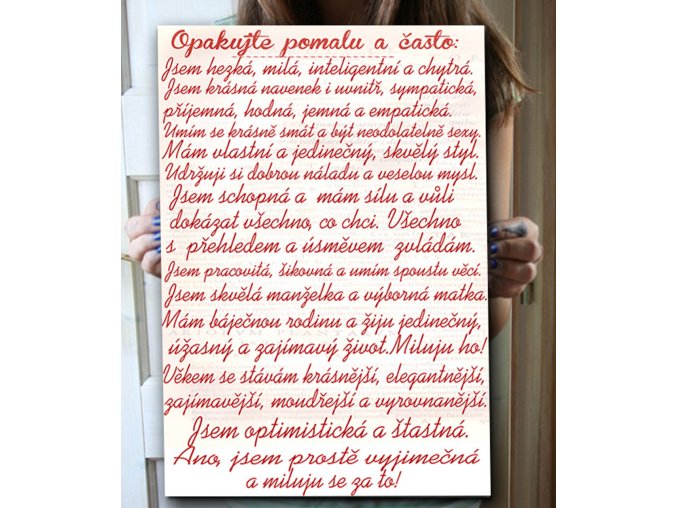 Opakujte pomalu a často:
Jsem hezká, milá, inteligentní a chytrá.
Jsem krásná navenek i uvnitř, sympatická,
příjemná, hodná, jemná a empatická.
Umím se krásně smát a být neodolatelně sexy.
Mám vlastní a jedinečný, skvělý styl.
Udržuji si dobrou náladu a veselou mysl.
Jsem schopná a mám sílu a vůli
dokázat všechno, co chci. Všechno
s přehledem a úsměvem zvládám.
Jsem pracovitá, šikovná a umím spoustu věcí.
Jsem skvělá manželka a výborná matka.
Mám báječnou rodinu a žiju jedinečný,
úžasný a zajímavý život. Miluju ho!
Věkem se stávám krásnější, elegantnější,
zajímavější, moudřejší a vyrovnanější.
Jsem optimistická a šťastná.
Ano, jsem prostě vyjimečná
a miluju se za to!